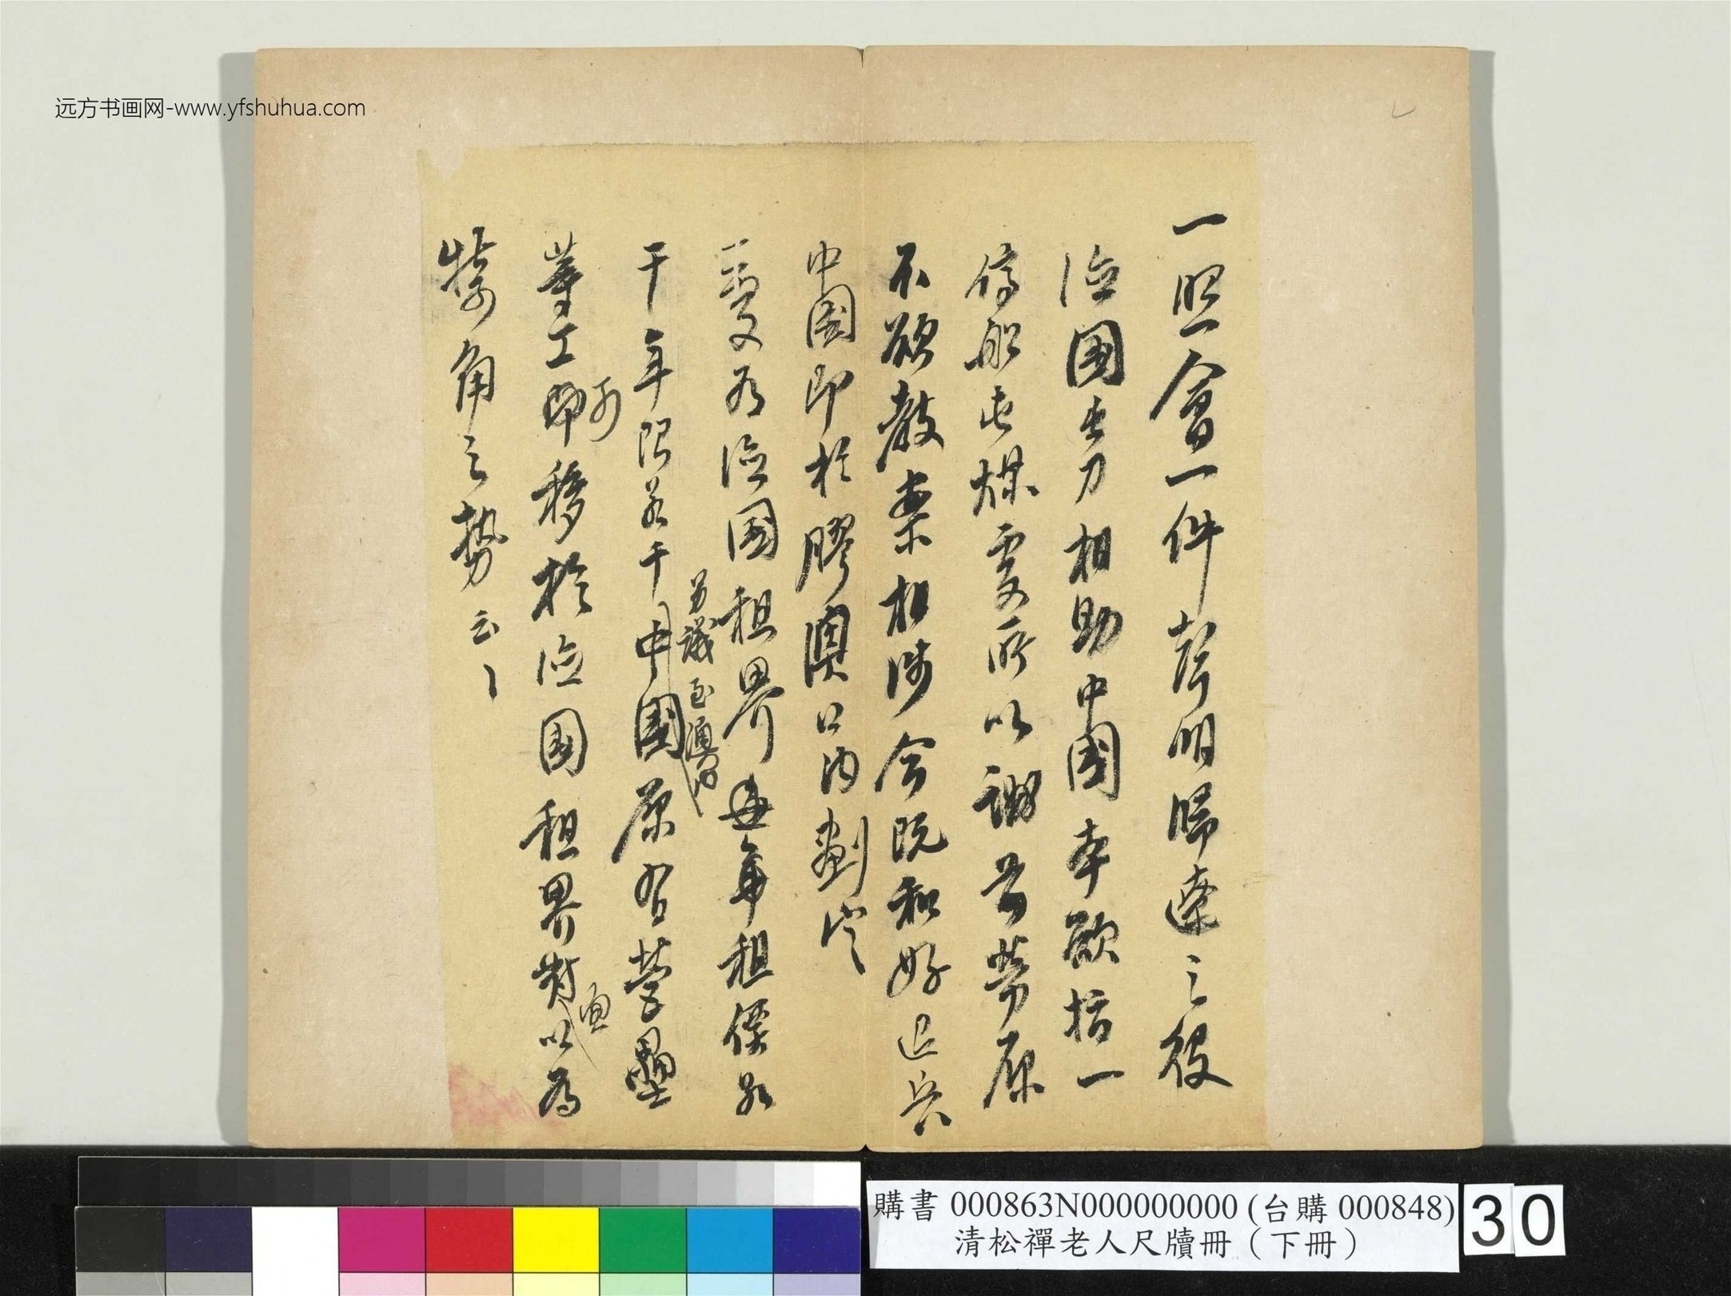 远方书画网-www.yfshuhua.com
一照會一件聲明歸遼之役
德國出力相助中國本欲指一
停船屯煤處所以酬前勞原
不欲教案相涉今既和好退兵
中國即於膠澳口內劃定
一處為德國租界每年租價若
干年限若干中國原有營壘
另議至澳內
等工即移於德國租界對以為
可
面
犄角之勢云〻
購書 000863N000000000 (台購 000848)
清松禪老人尺牘冊（下冊）
30